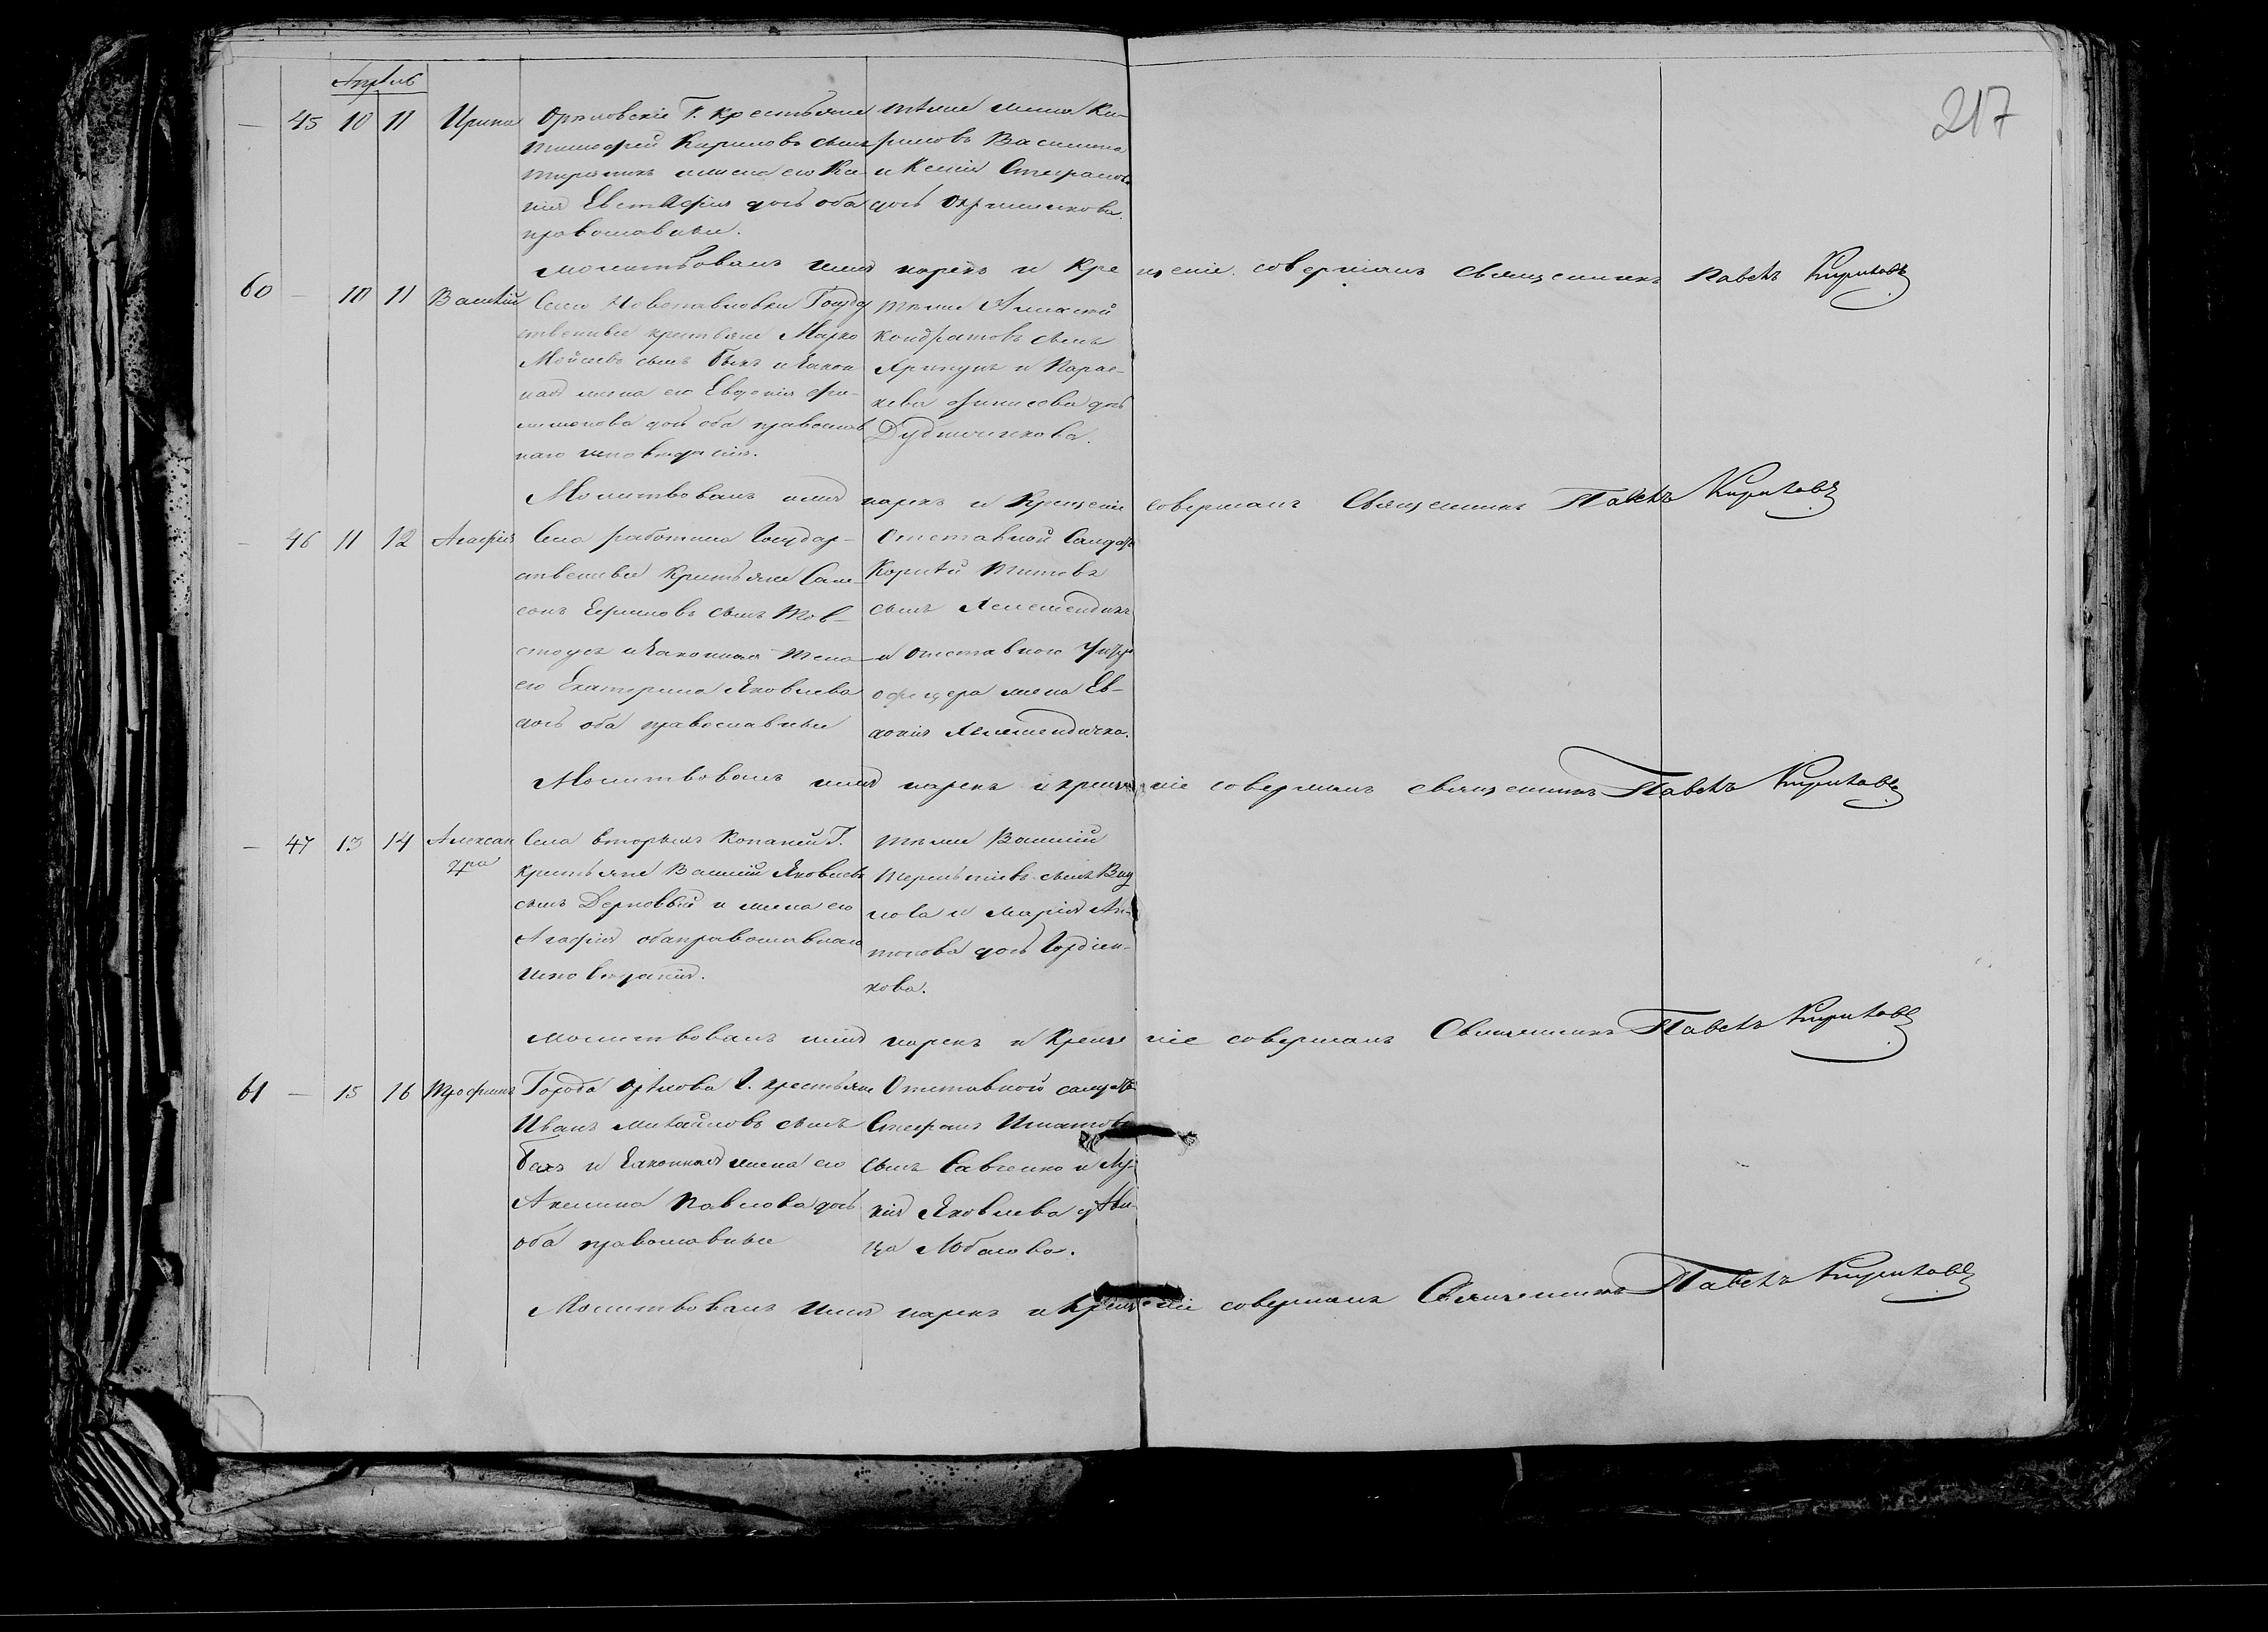 Апрѣль
217
— 45 10 11 Ирина Орѣховскіе Г. крестьяне
Тимофей Кириловъ сынъ
жена его Ксе-
нія Евстафія дочь оба
православные.
тѣже
Василина
и Ксенія Стефанова
дочь
Молитвовалъ имя нарекъ и крещеніе совершалъ Священникъ Павелъ Кириловъ
60 — 10 11 Василій Села Новопавловки Государ
ственные крестьяне Марко
Мойсеевъ сынъ Быкъ и закон
ная жена его Евдокія Фи-
лимонова дочь оба православ
наго исповѣданія.
тѣже Алексѣй
Кондратовъ сынъ
и Парас-
кева дочь
Молитвовалъ имя нарекъ и Крещеніе совершалъ Священникъ Павелъ Кириловъ
— 46 11 12 Агафія Села Государ-
ственные Крестьяне Сам-
сонъ Ефимовъ сынъ Тов-
стоусъ и законная жена
его Екатерина Яковлева
дочь оба православные
Отставной Солдатъ
Корнѣй Титовъ
сынъ
и отставного Унтеръ
офицера жена Ев-
докія
Молитвовалъ имя нарекъ и крещеніе совершалъ священникъ Павелъ Кириловъ
— 47 13 14 Алексан
дра
Села вторыхъ Копаней Г.
Крестьяне Василій Яковлевъ
сынъ Дерновый и жена его
Агафія оба православнаго
исповѣданія.
тѣже Василій
Терентіевъ сынъ
и Марія Ан-
тонова дочь Гордіен-
кова.
Молитвовалъ имя нарекъ и Крещеніе совершалъ Священникъ Павелъ Кириловъ
61 — 15 16 Трофимъ Города Орѣхова Г. крестьяне
Иванъ Михайловъ сынъ
и законная жена его
Акилина Павлова дочь
оба православные
Отставной солдатъ
Стефанъ Игнатовъ
сынъ Савченко и Лу-
кія Яковлева дѣви-
ца Лобасова.
Молитвовалъ имя нарекъ и крещеніе совершалъ Священникъ Павелъ Кириловъ